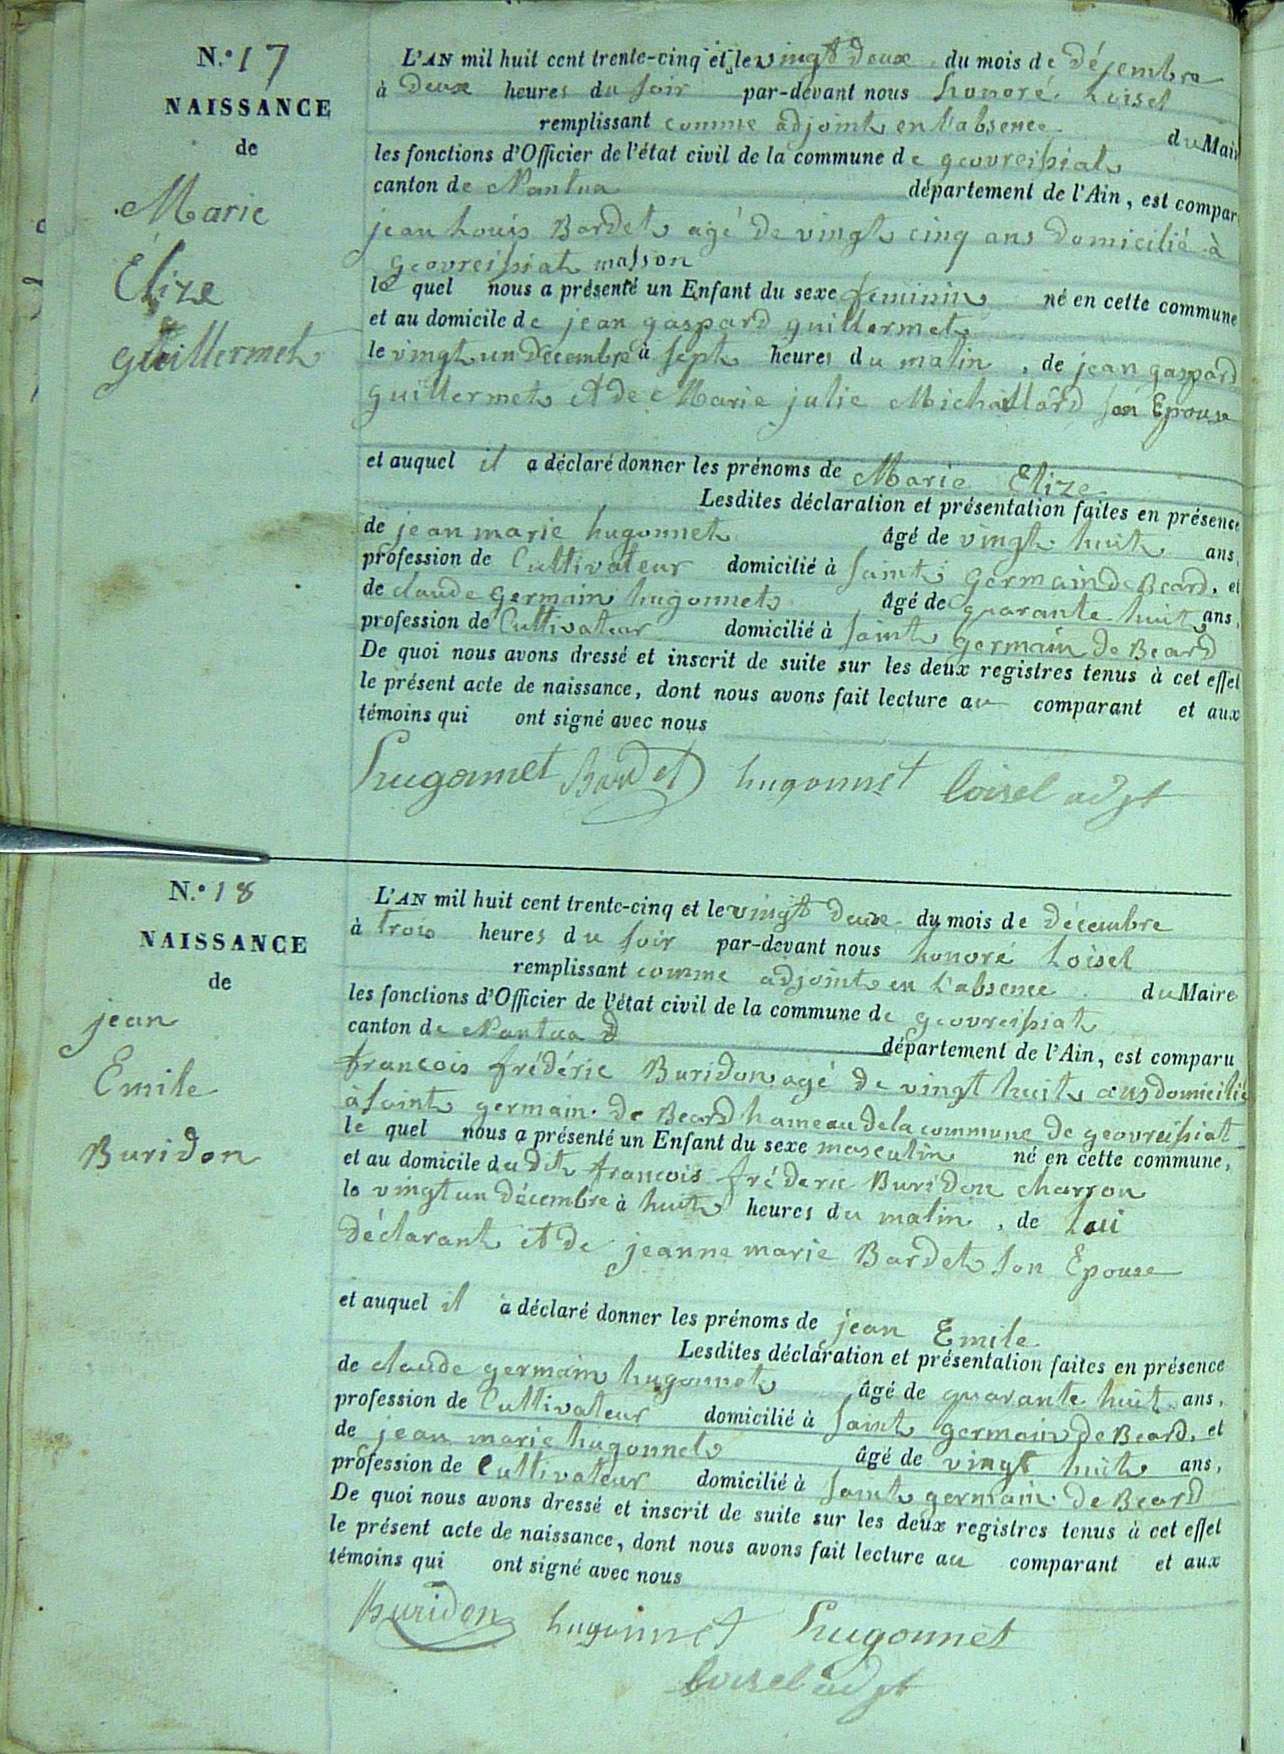 N.° 17
NAISSANCE
de
Marie
Élize
guillermet
L'AN mil huit cent trente-cinq et le vingt deux du mois de décembre
à deux heures du soir par-devant nous honoré Loisel
remplissant comme adjoint en l'absence du Maire
les fonctions d'Officier de l'état civil de la commune de geovreissiat
canton de Nantua département de l'Ain, est compar
jean Louis Bardet agé de vingt cinq ans domicilié à
geovreissiat masson
le quel nous a présenté un Enfant du sexe feminin né en cette commune
et au domicile de jean gaspard guillermet
le vingt un décembre à sept heures du matin, de jean gaspard
guillermet et de Marie julie Michaillard son Epouse
et auquel il a déclaré donner les prénoms de Marie Elize
Lesdites déclaration et présentation faites en présence
de jean marie hugonnet âgé de vingt huit ans,
profession de Cultivateur domicilié à saint germain de Beard, et
de claude germain hugonnet âgé de quarante huit ans,
profession de Cultivateur domicilié à saint germain de Beard
De quoi nous avons dressé et inscrit de suite sur les deux registres tenus à cet effet
le présent acte de naissance, dont nous avons fait lecture au comparant et aux
témoins qui ont signé avec nous
hugonnet Bardet hugonnet loisel adjt
N.° 18
NAISSANCE
de
jean
Emile
Buridon
L'AN mil huit cent trente-cinq et le vingt deux du mois de décembre
à trois heures du soir par-devant nous honoré Loisel
remplissant comme adjoint en l'absence du Maire
les fonctions d'Officier de l'état civil de la commune de geovreissiat
canton de Nantua département de l'Ain, est comparu
francois frédéric Buridon agé de vingt huit ans domicilié
à saint germain de Beard hameau de la commune de geovreissiat
le quel nous a présenté un Enfant du sexe masculin né en cette commune,
et au domicile du dit francois fréderic Buridon charron
le vingt un décembre à huit heures du matin, de Lui
déclarant et de jeanne marie Bardet son Epouse
et auquel il a déclaré donner les prénoms de jean Emile
Lesdites déclaration et présentation faites en présence
de claude germain hugonnet âgé de quarante huit ans,
profession de Cultivateur domicilié à saint germain de Beard, et
de jean marie hugonnet âgé de vingt huit ans,
profession de Cultivateur domicilié à saint germain de Beard
De quoi nous avons dressé et inscrit de suite sur les deux registres tenus à cet effet
le présent acte de naissance, dont nous avons fait lecture au comparant et aux
témoins qui ont signé avec nous
Buridon hugonnet hugonnet
loisel adjt